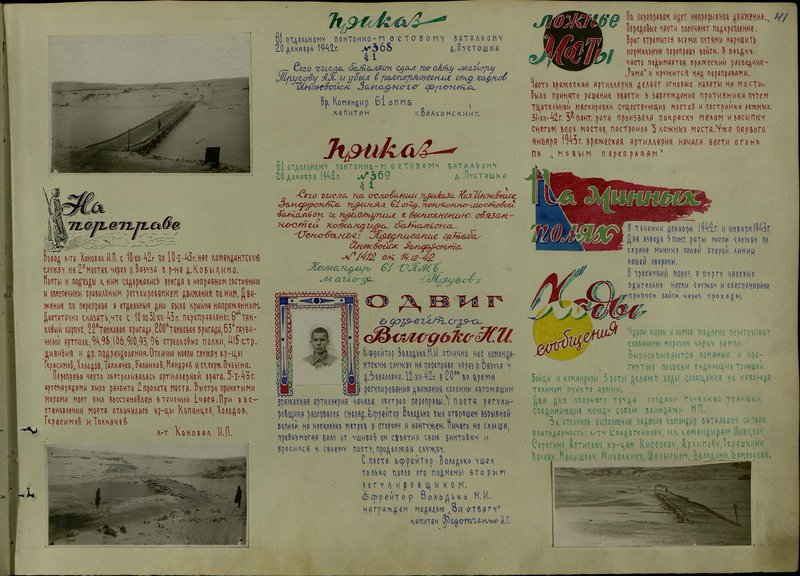 На
переправе
Взвод л-та Коновал И.П. с 10-XII-42г по 20-I-43г. нес комендантскую
службу на 2х мостах через р. Вазуза в р-не д. Кобылино.
Мосты и подъезды к ним содержались всегда в исправном состоянии
и обеспечены правильным регулированием движения по ним. Дви-
жение по переправе в отдельные дни было крайне напряженным.
Достаточно сказать, что с 10 по 31-XII-43г. переправлено: 6й тан-
ковый корпус, 22я танковая бригада, 200я танковая бригада, 63й гауби-
чный артполк, 94, 98, 106, 910, 93, 96 стрелковые полки, 415 стр.
дивизия и др. подразделения. Отлично несли службу кр-цы
Герасимов, Холодов, Толкачев, Баланков, Мандров и ст. серж. Пузына.
Переправа часто обстреливалась артиллерией врага. 5-I-43г.
артснарядами было разбито 2 пролета моста. Быстро принятыми
мерами мост был восстановлен в течении 1 часа. При вос-
становлении моста отличились кр-цы Копанцев, Холодов,
Герасимов и Толкачев
л-т Коновал И.П.
Приказ
61 отдельному понтонно-мостовому батальону
20 декабря 1942г. №368 д. Пустошка
§1
Сего числа батальон сдал по акту майору
Трусову А.П и убыл в распоряжение отд. кадров
Инжвойск Западного фронта
Вр. Командир 61 ОПМБ
капитан /Волхонский/
Приказ
61 отдельному понтонно-мостовому батальону
20 декабря 1942г. №369 д. Пустошка
§1
Сего числа на основании приказа Нач. Инжвойск
Запфронта принял 61 отд. понтонно-мостовой
батальон и приступил к выполнению обязан-
ностей командира батальона.
Основание: Предписание штаба
Инжвойск Запфронта
№1412 от 14.12.42
Командир 61 ОПМБ
майор /Трусов/
Подвиг
ефрейтора
Володько Н.И.
Ефрейтор Володько Н.И. отлично нес коменда-
нтскую службу на переправе через р. Вазуза у
12-XII-42г в 20⁰⁰ во время
регулирования движения колонны автомашин
вражеская артиллерия начала обстрел переправы. У поста регули-
ровщика разорвался снаряд. Ефрейтор Володько был отброшен взрывной
волной на несколько метров в сторону и контужен. Ничего не слыша,
превозмогая боли от ушибов он схватил свою винтовку и
бросился к своему посту, продолжая службу.
С поста ефрейтор Володько ушел
только после его подмены вторым
регулировщиком.
Ефрейтор Володько Н.И.
награжден медалью „За отвагу"
капитан Федотченко А.Г.
41
Ложные
Мосты
По переправам идет непрерывное движение.
Передовые части получают подкрепление.
Враг стремится всеми путями нарушить
нормальную переправу войск. В воздух
часто поднимается вражеский разведчик-
„Рама" и кружится над переправами.
Часто вражеская артиллерия делает огневые налеты на мосты.
Было принято решение ввести в заблуждение противника путем
тщательной маскировки существующих мостов и постройки ложных.
31-XII-42г. 3я понт. рота произвела покраску мелом и засыпку
снегом всех мостов, построила 3 ложных моста. Уже первого
января 1943г. вражеская артиллерия начала вести огонь
по „новым переправам"
На минных
полях
В течении декабря 1942г. и января 1943г.
Два взвода 3 понт. роты несли службу по
охране минных полей второй линии
нашей обороны.
В трескучий мороз, в пургу часовые
бдительно несли службу и обеспечивали
пропуск войск через проходы.
Ходы
сообщения
Удары кирок и ломов медленно перегрызают
скованную морозом корку земли.
Вырисовываются ломаные и изо-
гнутые полоски будущих траншей
Бойцы и командиры 3 роты делают ходы сообщения на наблюда-
тельном пункте армии.
Два дня упорного труда создали глубокие траншеи,
соединяющие между собою блиндажи НП.
За отличное выполнение задания командир батальона объявил
благодарность: л-ту Солдатенкову, мл. командирам Шевцову,
Серегину, Антипову, кр-цам Киселеву, Архипову, Терешкину,
Кочеву, Малышеву, Михалкину, Шалыгину, Володину, Ермоленко.